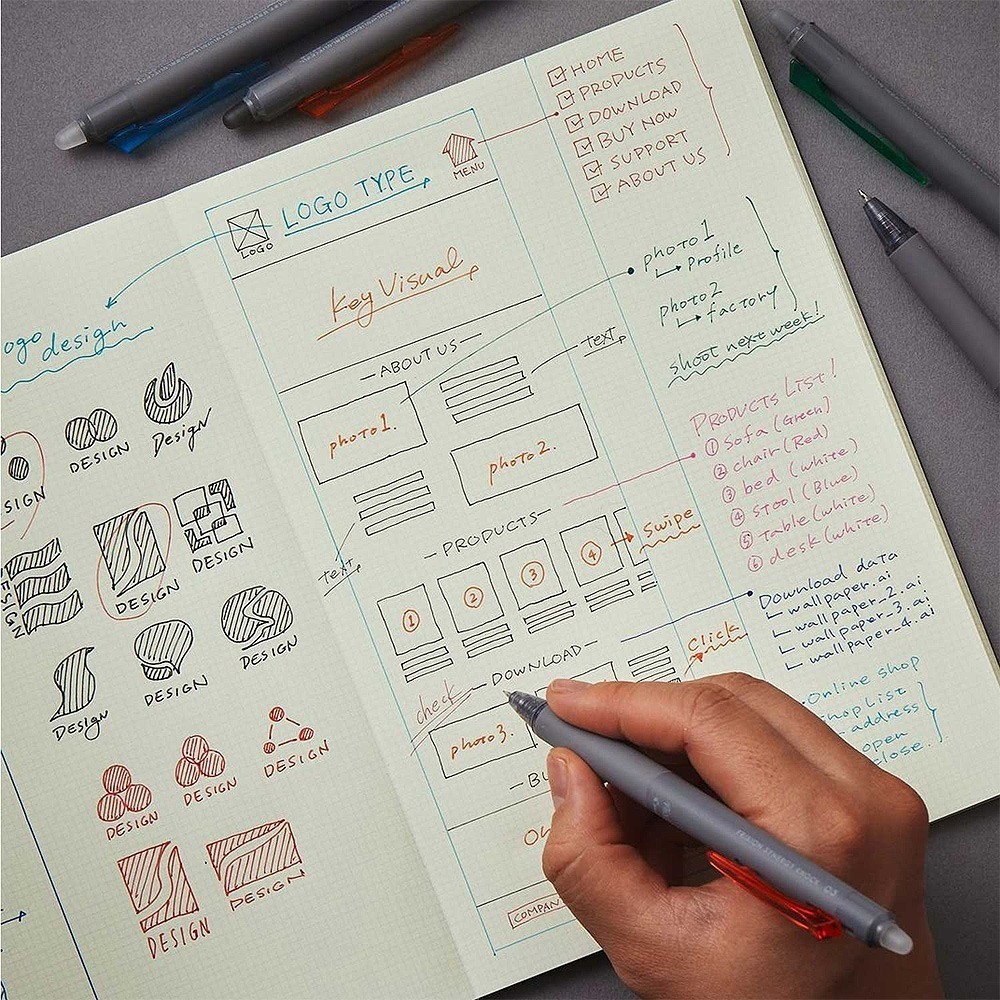 ogo design
DESIGN
Design
SIGN
DESIGN
DESIGN
DESIGN
Design
DESIGN
DESIGN
DESIGN
DESIGN
DESIGN
DESIGN
DESIGN
LOGO
LOGO TYPE
MENU
Key Visual
ABOUT US
photo1.
text
photo2.
text
PRODUCTS
① ② ③ ④
Swipe
DOWNLOAD
check
Click
photo3.
BU
COMPAN
☑ HOME
☑ PRODUCTS
☑ DOWNLOAD
☑ BUY NOW
☑ SUPPORT
☑ ABOUT US
photo1
Profile
photo2
factory
shoot next week!
PRODUCTS LIST!
① Sofa (Green)
② chair (Red)
③ bed (white)
④ stool (Blue)
⑤ table (white)
⑥ desk (white)
Download data
wallpaper.ai
wallpaper_2.ai
wallpaper_3.ai
wallpaper_4.ai
Online shop
shop List
address
open
close.
FRIXION SYNERGY KNOCK 05